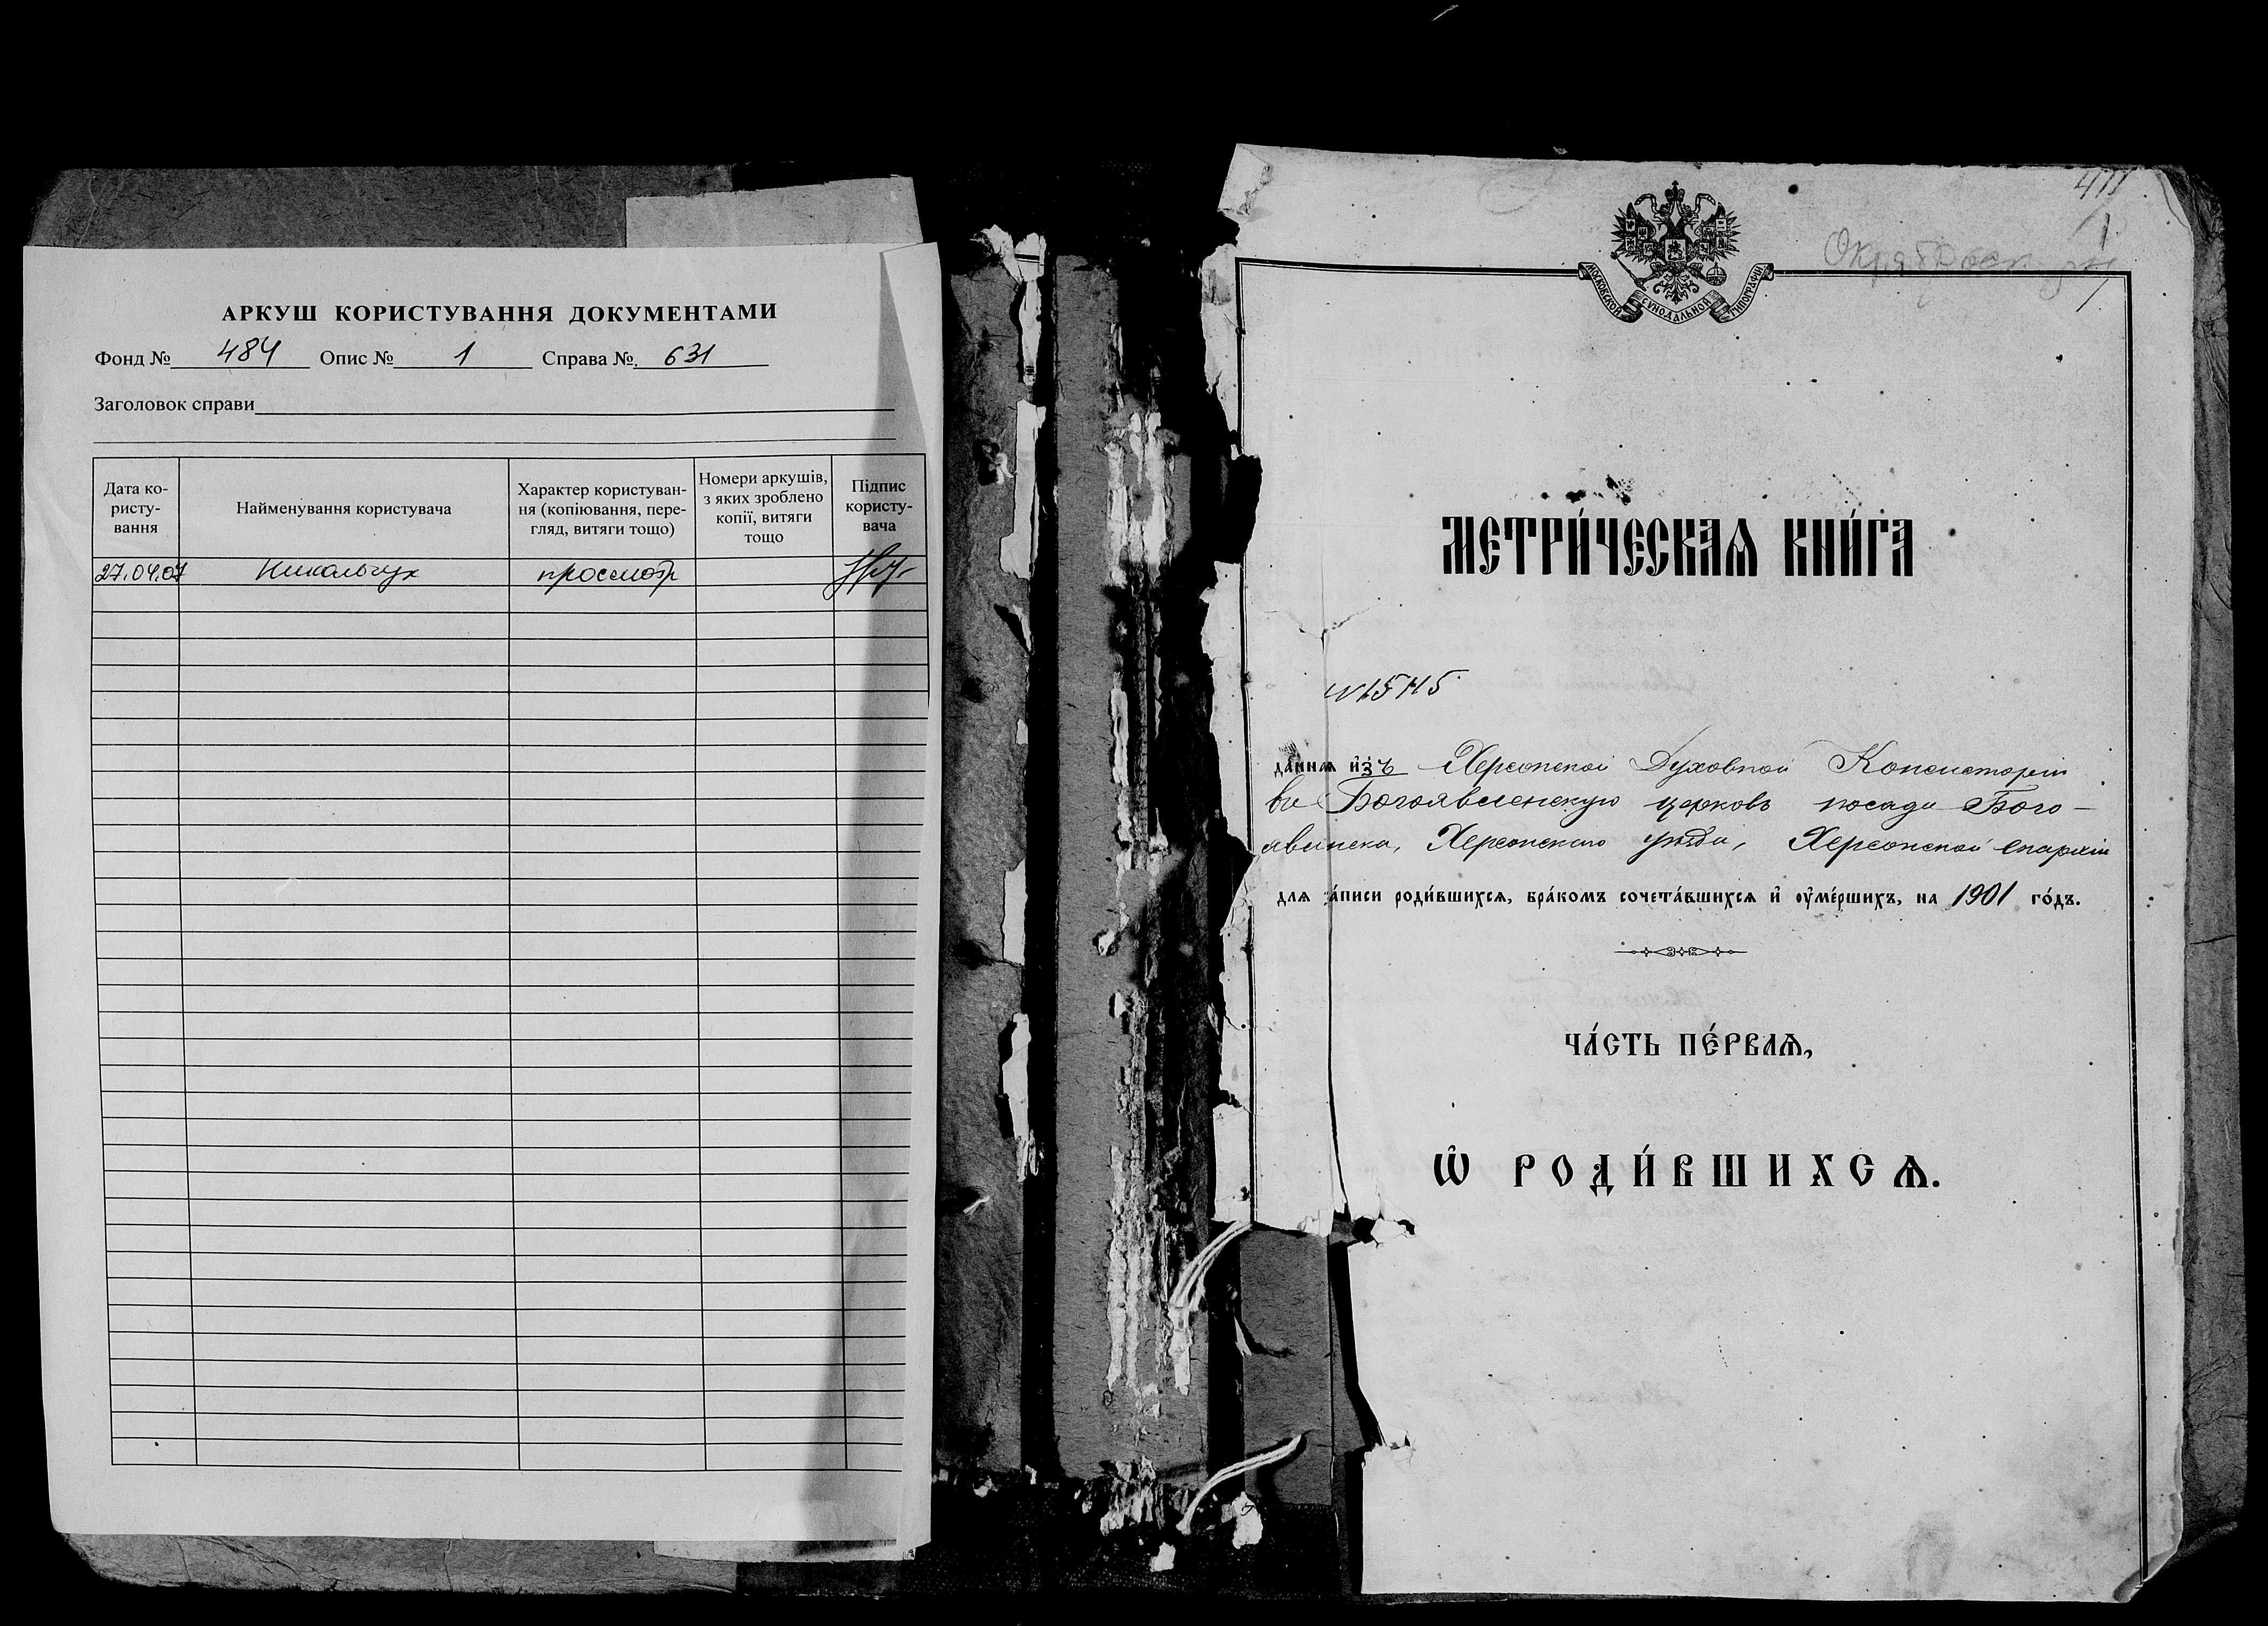 АРКУШ КОРИСТУВАННЯ ДОКУМЕНТАМИ
Фонд № 484 Опис № 1 Справа № 631
Заголовок справи
Дата ко-
ристу-
вання
Найменування користувача
Характер користуван-
ня (копіювання, пере-
гляд, витяги тощо)
Номери аркушів,
з яких зроблено
копії, витяги
тощо
Підпис
користу-
вача
27.04.07 просмотр
МОСКОВСКОЙ СѴНОДАЛЬНОЙ ТИПОГРАФІИ
МЕТРИ́ЧЕСКАѦ КНИ́ГА
да́ннаѧ и҆зъ Херсонской Духовной Консисторіи
въ Богоявленскую церковь посада Бого-
явленска, Херсонскаго уѣзда, Херсонской епархіи
для за́писи роди́вшихсѧ, бра́комъ сочета́вшихсѧ и҆ оу҆ме́ршихъ, на 1901 го́дъ.
ЧА́СТЬ ПЕ́РВАѦ,
Ѡ҆ РОДИ́ВШИХСѦ.